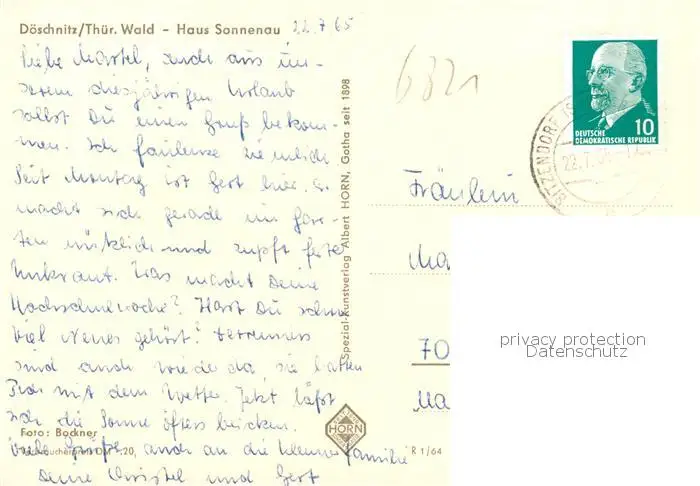 Döschnitz/Thür. Wald - Haus Sonnenau
22.7.65
Liebe Martel, auch aus un-
serem diesjährigen Urlaub
sollst Du einen Gruß bekom-
men. Ich faulenze ziemlich.
Seit Montag ist Gert hier, u.
macht sich gerade im Gar-
ten nützlich und zupft feste
Unkraut. Was macht Deine
Hochschulwoche? Hast Du schon
viel Neues gehört?
sind auch wieder da, sie hatten
Pech mit dem Wetter. Jetzt läßt
sich die Sonne öfters blicken.
Viele Grüße, auch an die kleine Familie
Deine Christel und Gert
Foto: Bockner
Verbraucherpreis DM -,20,
Spezial-Kunstverlag Albert HORN, Gotha seit 1898
HORN
R 1/64
6321
10
DEUTSCHE
DEMOKRATISCHE REPUBLIK
SITZENDORF
22.7.
Fräulein
Ma
70
Ma
privacy protection
Datenschutz